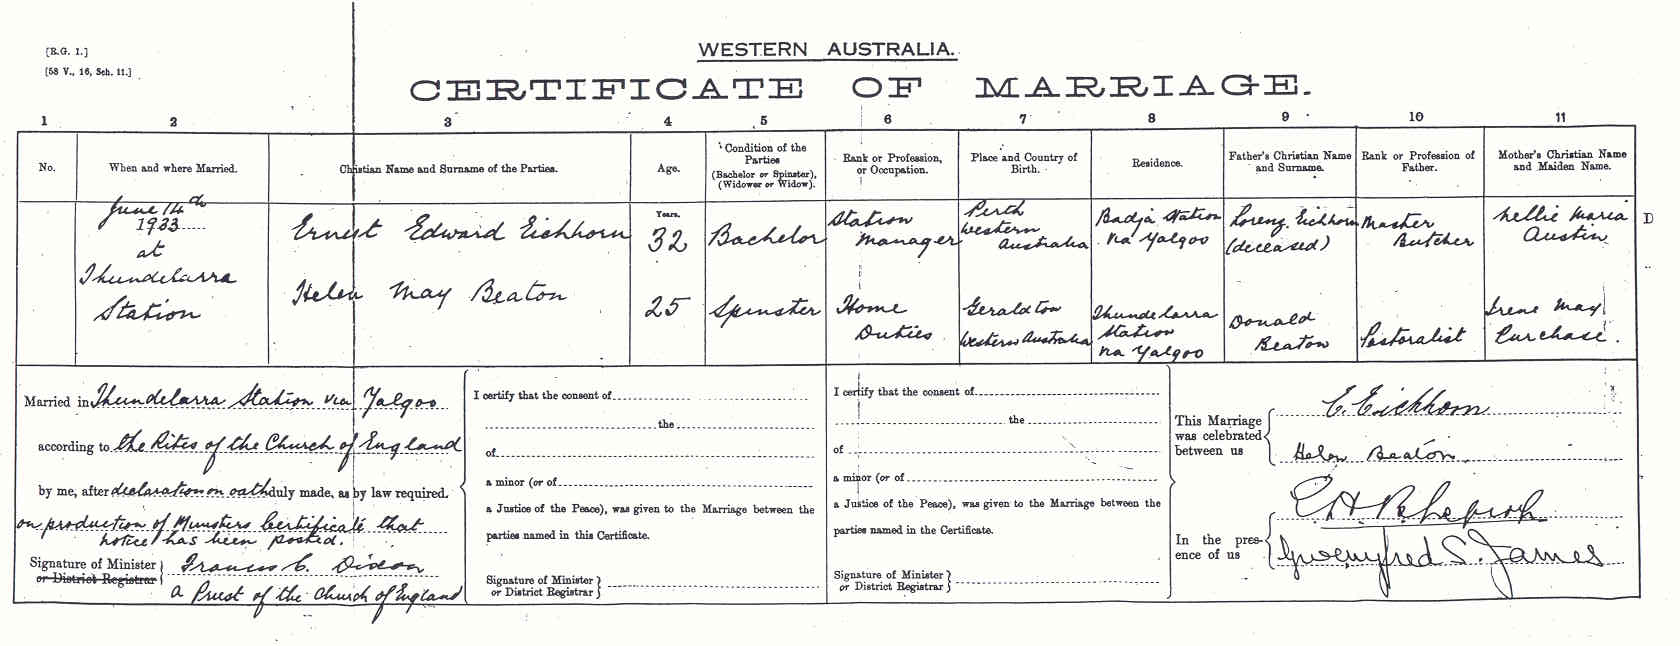 [R.G. 1.]
[58 V., 16, Sch. 11.]
WESTERN AUSTRALIA.
CERTIFICATE OF MARRIAGE.
1 2 3 4 5 6 7 8 9 10 11
No.
When and where Married.
Christian Name and Surname of the Parties.
Age.
Condition of the
Parties
(Bachelor or Spinster),
(Widower or Widow).
Rank or Profession,
or Occupation.
Place and Country of
Birth.
Residence.
Father's Christian Name
and Surname.
Rank or Profession of
Father.
Mother's Christian Name
and Maiden Name.
June 14th
1933
at
Thundelarra
Station
Ernest Edward Eichhorn
Years.
32
Bachelor
Station
Manager
Perth
Western
Australia
Badja Station
via Yalgoo
Lorenz Eichhorn
(deceased)
Master
Butcher
Nellie Maria
Austin
D
Helen May Beaton
25
Spinster
Home
Duties
Geraldton
Western Australia
Thundelarra
Station
via Yalgoo
Donald
Beaton
Pastoralist
Irene May
Purchase.
Married in Thundelarra Station via Yalgoo
according to the Rites of the Church of England
by me, after declaration on oath duly made, as by law required.
on production of Ministers Certificate that
notice has been posted.
Signature of Minister
or District Registrar
Francis C. Dixon
a Priest of the Church of England
I certify that the consent of
the
of
a minor (or of
a Justice of the Peace), was given to the Marriage between the
parties named in this Certificate.
Signature of Minister
or District Registrar
I certify that the consent of
the
of
a minor (or of
a Justice of the Peace), was given to the Marriage between the
parties named in the Certificate.
Signature of Minister
or District Registrar
This Marriage
was celebrated
between us
E. Eichhorn
Helen Beaton.
In the pres-
ence of us
C. H.
Gwenyfred S. James